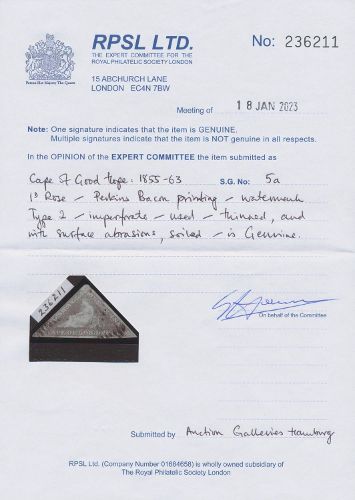 RPSL LTD.
THE EXPERT COMMITTEE FOR THE
ROYAL PHILATELIC SOCIETY LONDON
No: 236211
15 ABCHURCH LANE
LONDON EC4N 7BW
Meeting of 18 JAN 2023
Note: One signature indicates that the item is GENUINE.
Multiple signatures indicate that the item is NOT genuine in all respects.
In the OPINION of the EXPERT COMMITTEE the item submitted as
Cape of Good Hope: 1855-63 S.G. No: 5a
1d Rose - Perkins Bacon printing - watermark
Type 2 - imperforate - used - thinned, and
with surface abrasions, soiled - is Genuine.
236211
On behalf of the Committee
Submitted by Auction Galleries Hamburg
RPSL Ltd. (Company Number 01684658) is wholly owned subsidiary of
The Royal Philatelic Society London